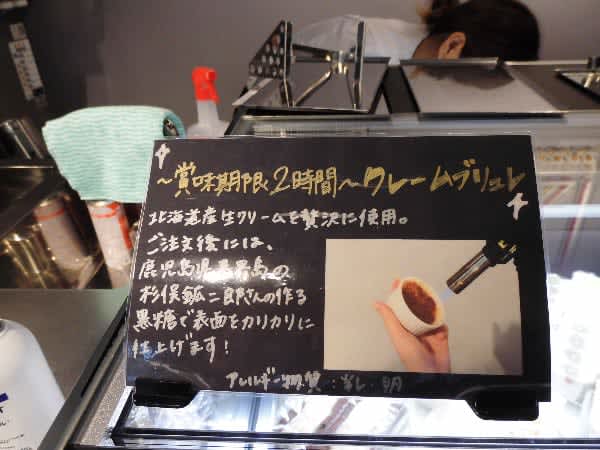 ~賞味期限2時間~クレームブリュレ
北海道産生クリームを贅沢に使用。
ご注文後には、
鹿児島県喜界島の
杉俣紘二郎さんの作る
黒糖で表面をカリカリに
仕上げます!
アレルギー物質:乳・卵